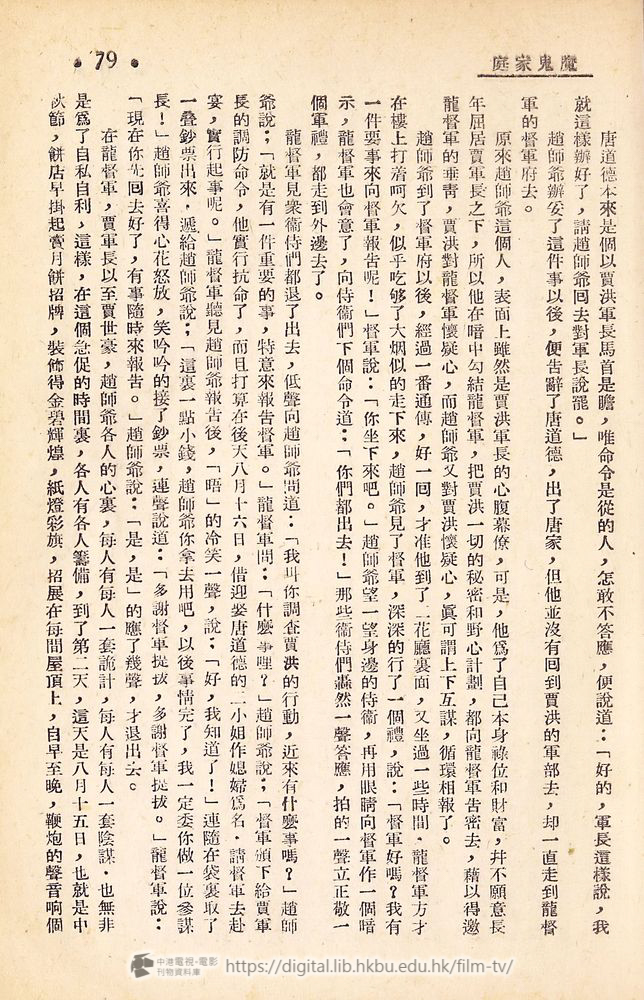 魔鬼家庭
•79•
唐道德本來是個以賈洪軍長馬首是瞻，唯命令是從的人，怎敢不答應，便說道：「好的，軍長這樣說，我
就這樣辦好了，請趙師爺回去對軍長說罷。」
趙師爺辦妥了這件事以後，便告辭了唐道德，出了唐家，但他並沒有回到賈洪的軍部去，却一直走到龍督
軍的督軍府去。
原來趙師爺這個人，表面上雖然是賈洪軍長的心腹幕僚，可是，他爲了自己本身祿位和財富，幷不願意長
年屈居賈軍長之下，所以他在暗中勾結龍督軍，把賈洪一切的秘密和野心計劃，都向龍督軍告密去，藉以得邀
龍督軍的垂靑，賈洪對龍督軍懷疑心，而趙師爺又對賈洪懷疑心，眞可謂上下互謀，循環相報了。
趙師爺到了督軍府以後，經過一番通傳，好一回，才准他到了二花廳裏面，又坐過一些時間。龍督軍方才
在樓上打着呵欠，似乎吃够了大烟似的走下來，趙師爺見了督軍，深深的行了一個禮，說：「督軍好嗎？我有
一件要事來向督軍報告呢！」督軍說：「你坐下來吧。」趙師爺望一望身邊的侍衞，再用眼睛向督軍作一個暗
示，龍督軍也會意了，向侍衞們下個命令道：「你們都出去！」那些衞侍們轟然一聲答應，拍的一聲立正敬一
個軍禮，都走到外邊去了。
龍督軍見衆衞侍們都退了出去，低聲向趙師爺問道：「我叫你調査賈洪的行動，近來有什麼事嗎？」趙師
爺說；「就是有一件重要的事，特意來報告督軍。」龍督軍問：「什麼事哩？」趙師爺說；「督軍頒下給賈軍
長的調防命令，他實行抗命了，而且打算在後天八月十六日，借迎娶唐道德的二小姐作媳婦爲名。請督軍去赴
宴，實行起事呢。」龍督軍聽見趙師爺報告後，「唔」的冷笑一聲，說：「好，我知道了！」連隨在袋裏取了
一叠鈔票出來，遞給趙師爺說：「這裏一點小錢，趙師爺你拿去用吧，以後事情完了，我一定委你做一位參謀
長！」趙師爺喜得心花怒放，笑吟吟的接了鈔票，連聲說道：「多謝督軍提拔，多謝督軍提拔。」龍督軍說：
「現在你先回去好了，有事隨時來報告。」趙師爺說：「是，是」的應了幾聲，才退出去。
在龍督軍，賈軍長以至賈世豪，趙師爺各人的心裏，每人有每人一套詭計，每人有每人一套陰謀。也無非
是爲了自私自利，這樣，在這個急促的時間裏，各人有各人籌備，到了第二天，這天是八月十五日，也就是中
秋節，餅店早掛起賣月餅招牌，裝飾得金碧輝煌，紙燈彩旗，招展在每間屋頂上，自早至晚，鞭炮的聲音响個
中港電視·電影
刊物資料庫
https://digital.lib.hkbu.edu.hk/film-tv/